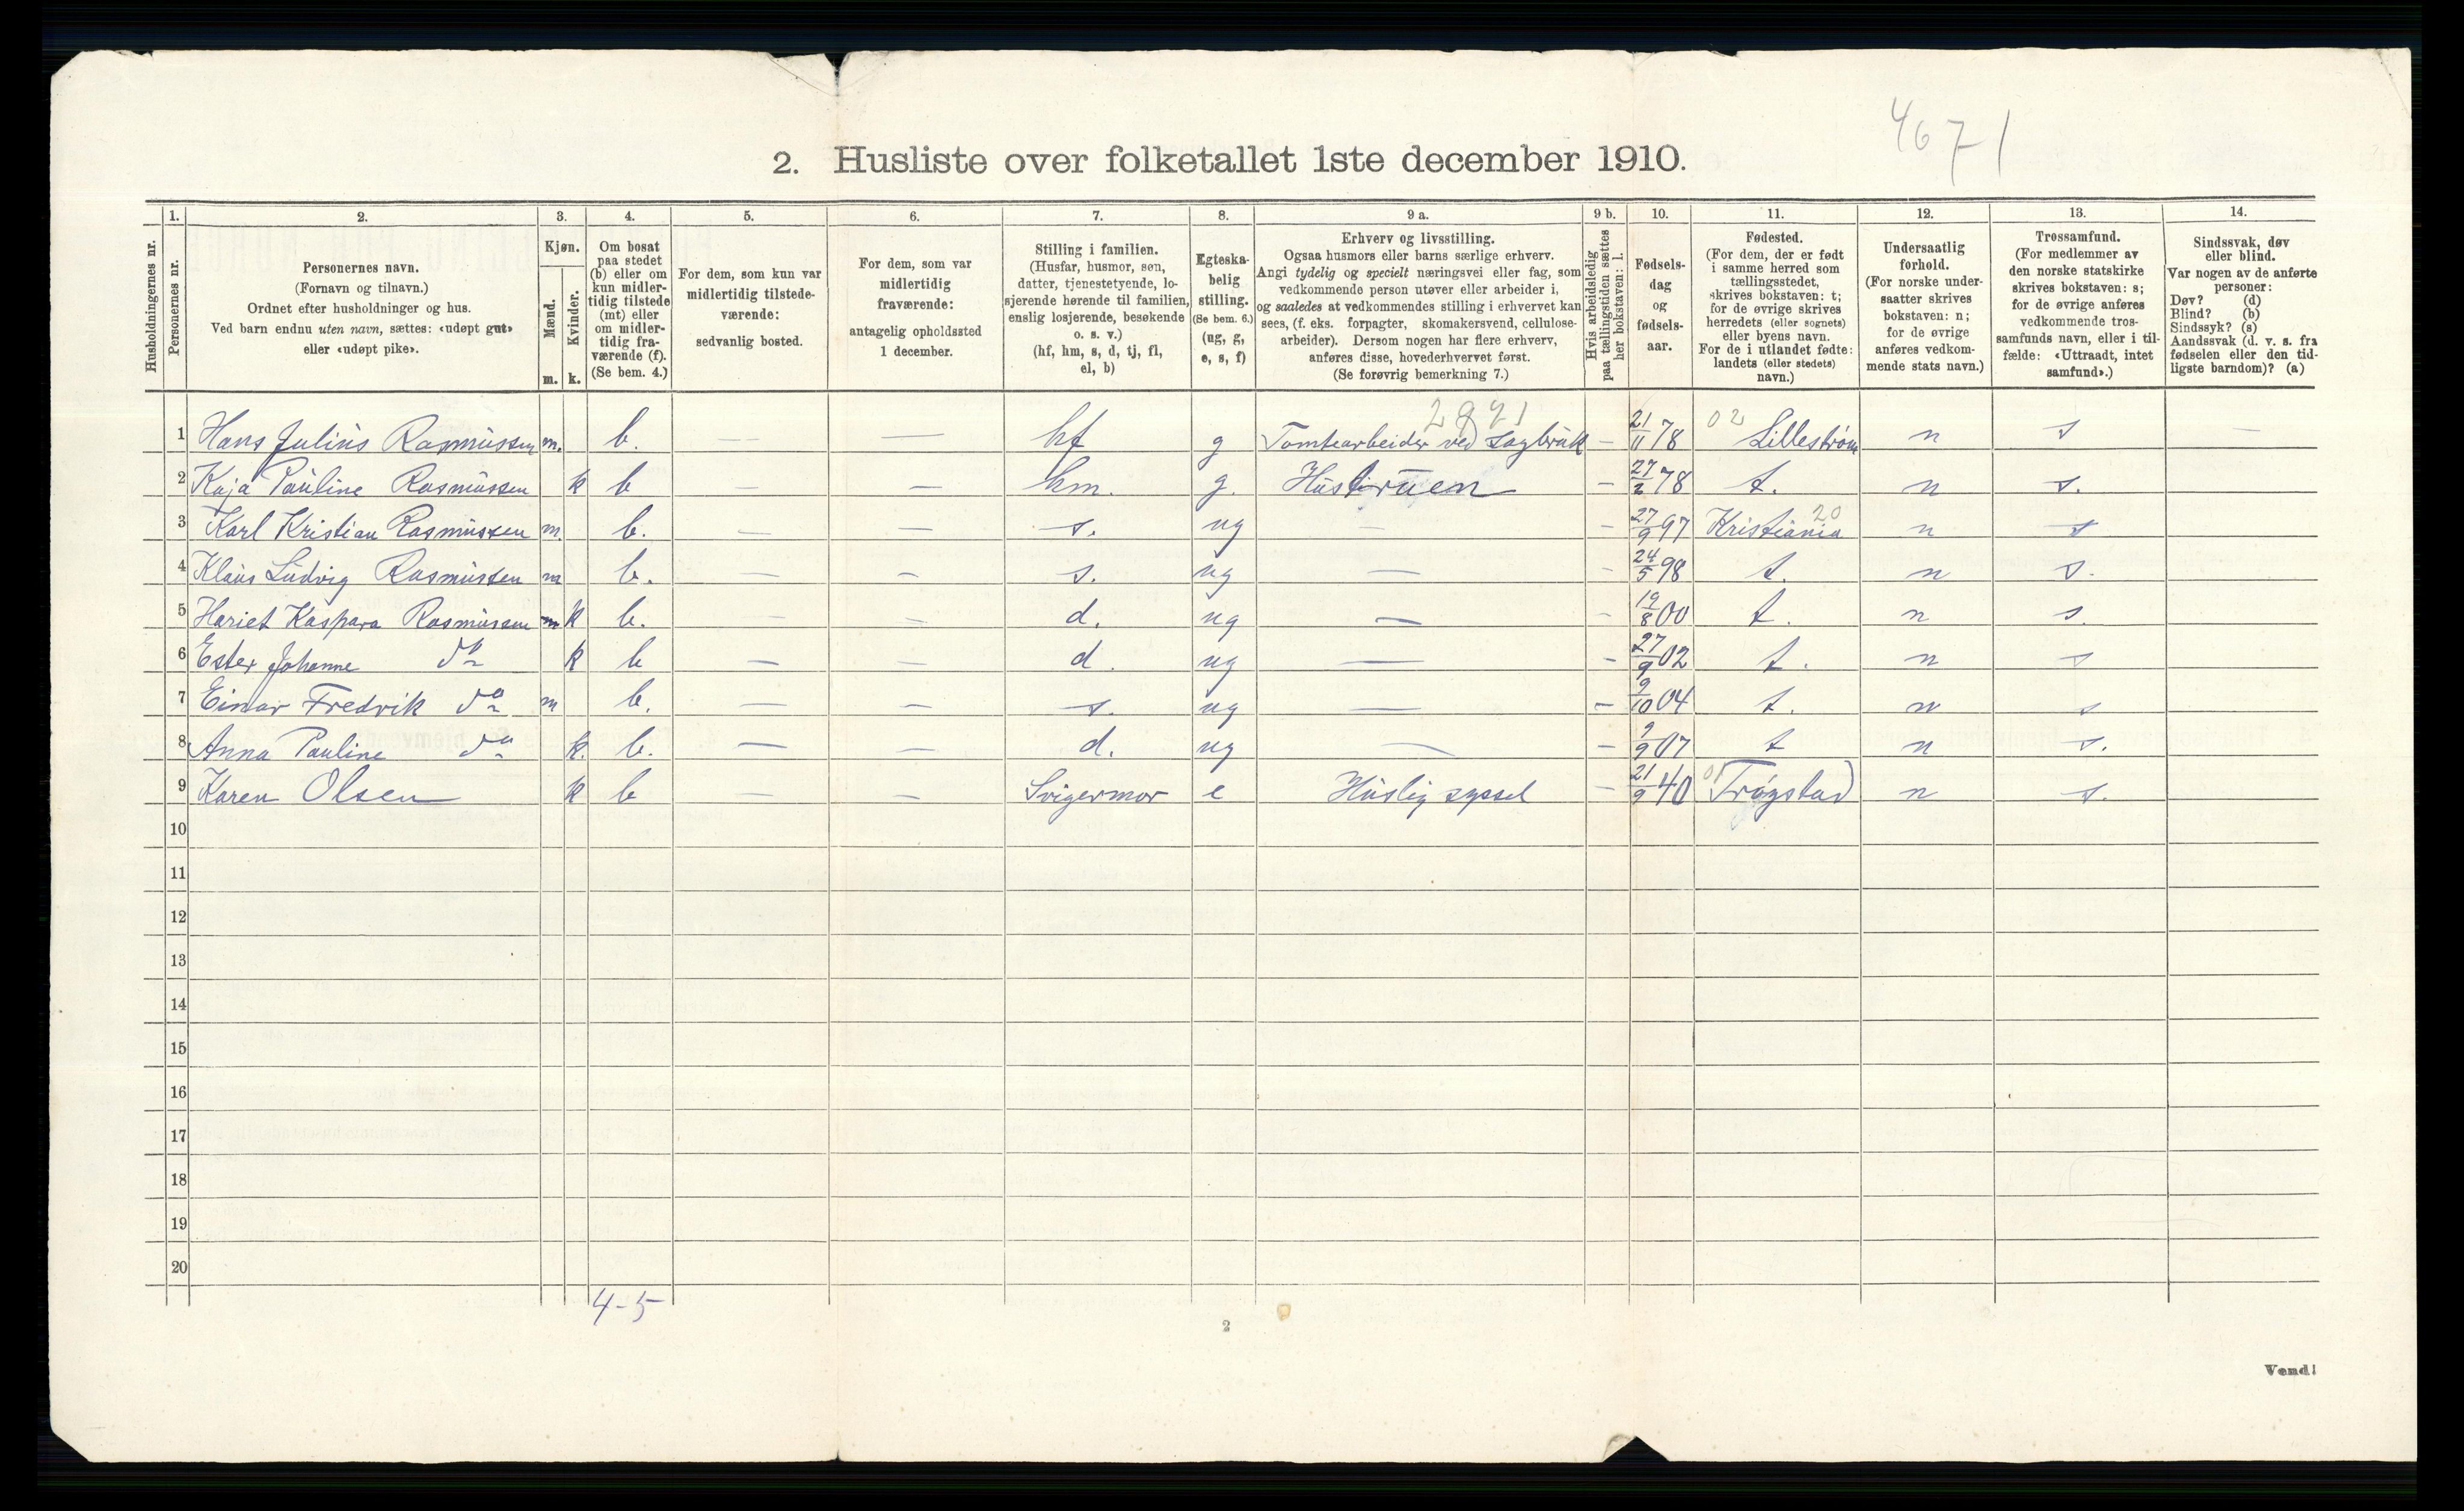 4671
2. Husliste over folketallet 1ste december 1910.
1. 2. 3. 4. 5. 6. 7. 8. 9 a. 9 b. 10. 11. 12. 13. 14.
Husholdningernes nr.
Personernes nr.
Personernes navn.
(Fornavn og tilnavn.)
Ordnet efter husholdninger og hus.
Ved barn endnu uten navn, sættes: «udøpt gut»
eller «udøpt pike».
Kjøn.
Mænd.
Kvinder.
m. k.
Om bosat
paa stedet
(b) eller om
kun midler-
tidig tilstede
(mt) eller
om midler-
tidig fra-
værende (f).
(Se bem. 4.)
For dem, som kun var
midlertidig tilstede-
værende:
sedvanlig bosted.
For dem, som var
midlertidig
fraværende:
antagelig opholdssted
1 december.
Stilling i familien.
(Husfar, husmor, søn,
datter, tjenestetyende, lo-
sjerende hørende til familien,
enslig losjerende, besøkende
o. s. v.)
(hf, hm, s, d, tj, fl,
el, b)
Egteska-
belig
stilling.
(Se bem. 6.)
(ug, g,
e, s, f)
Erhverv og livsstilling.
Ogsaa husmors eller barns særlige erhverv.
Angi tydelig og specielt næringsvei eller fag, som
vedkommende person utøver eller arbeider i,
og saaledes at vedkommendes stilling i erhvervet kan
sees, (f. eks. forpagter, skomakersvend, cellulose-
arbeider). Dersom nogen har flere erhverv,
anføres disse, hovederhvervet først.
(Se forøvrig bemerkning 7.)
Hvis arbeidsledig
paa tællingstiden sættes
her bokstaven: l.
Fødsels-
dag
og
fødsels-
aar.
Fødested.
(For dem, der er født
i samme herred som
tællingsstedet,
skrives bokstaven: t;
for de øvrige skrives
herredets (eller sognets)
eller byens navn.
For de i utlandet fødte:
landets (eller stedets)
navn.)
Undersaatlig
forhold.
(For norske under-
saatter skrives
bokstaven: n;
for de øvrige
anføres vedkom-
mende stats navn.)
Trossamfund.
(For medlemmer av
den norske statskirke
skrives bokstaven: s;
for de øvrige anføres
vedkommende tros-
samfunds navn, eller i til-
fælde: «Uttraadt, intet
samfund».)
Sindssvak, døv
eller blind.
Var nogen av de anførte
personer:
Døv? (d)
Blind? (b)
Sindssyk? (s)
Aandssvak (d. v. s. fra
fødselen eller den tid-
ligste barndom)? (a)
2821 02
1 Hans Julius Rasmussen m. b. — — hf g Tomtearbeider ved Sagbruk — 21/11 78 Lillestrøm n s —
2 Kaja Pauline Rasmussen k b — — hm. g. Hustruen — 27/2 78 t. n s.
20
3 Karl Kristian Rasmussen m. b. — — s. ug — — 27/9 97 Kristiania n s
4 Klaus Ludvig Rasmussen m b. — — s. ug — — 24/5 98 t. n s.
5 Hariet Kaspara Rasmussen m k b. — — d. ug — — 19/8 00 t. n s.
6 Ester Johanne do k b — — d. ug — — 27/9 02 t. n s
7 Einar Fredrik do m b. — — s. ug — — 9/10 04 t. n s
8 Anna Pauline do k. b. — — d. ug — — 9/9 07 t n s.
01
9 Karen Olsen k b — — Svigermor e Huslig syssel — 21/9 40 Trøgstad n s.
10
11
12
13
14
15
16
17
18
19
20
4-5
2
Vend!